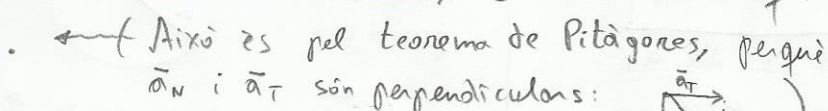 . ← Això es pel teorema de Pitàgores, perquè
ā_N i ā_T són perpendiculars:
ā_T